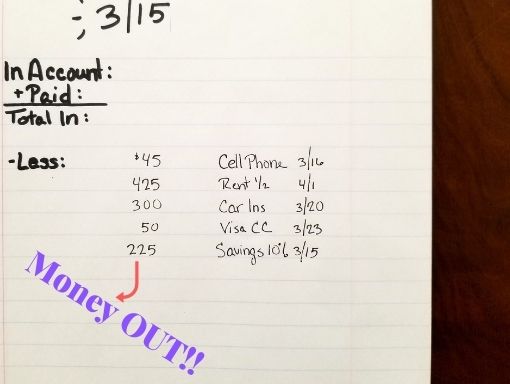 -; 3/15
In Account:
+ Paid:
Total In:
-Less: $45 Cell Phone 3/16
425 Rent 1/2 4/1
300 Car Ins 3/20
50 Visa CC 3/23
225 Savings 10% 3/15
Money OUT!!